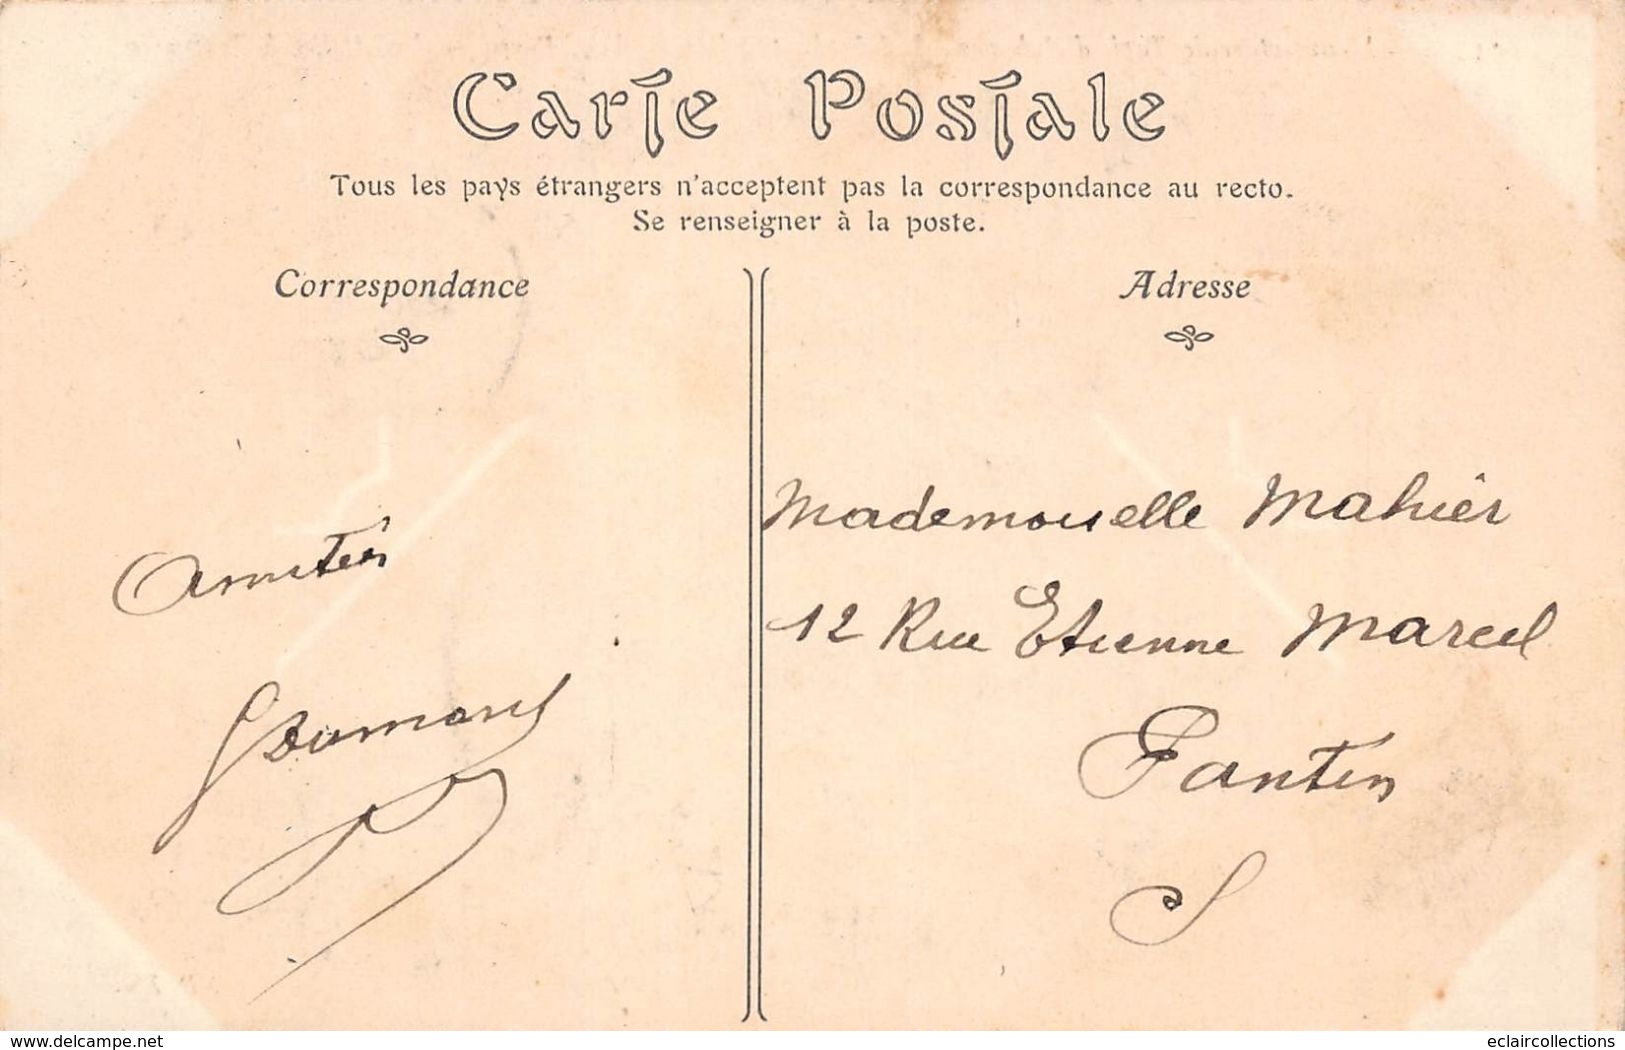 Carte Postale
Tous les pays étrangers n'acceptent pas la correspondance au recto.
Se renseigner à la poste.
Correspondance
Adresse
Amitiés
Mademoiselle Mahier
12 Rue Etienne Marcel
Pantin
S
delcampe.net
eclaircollections